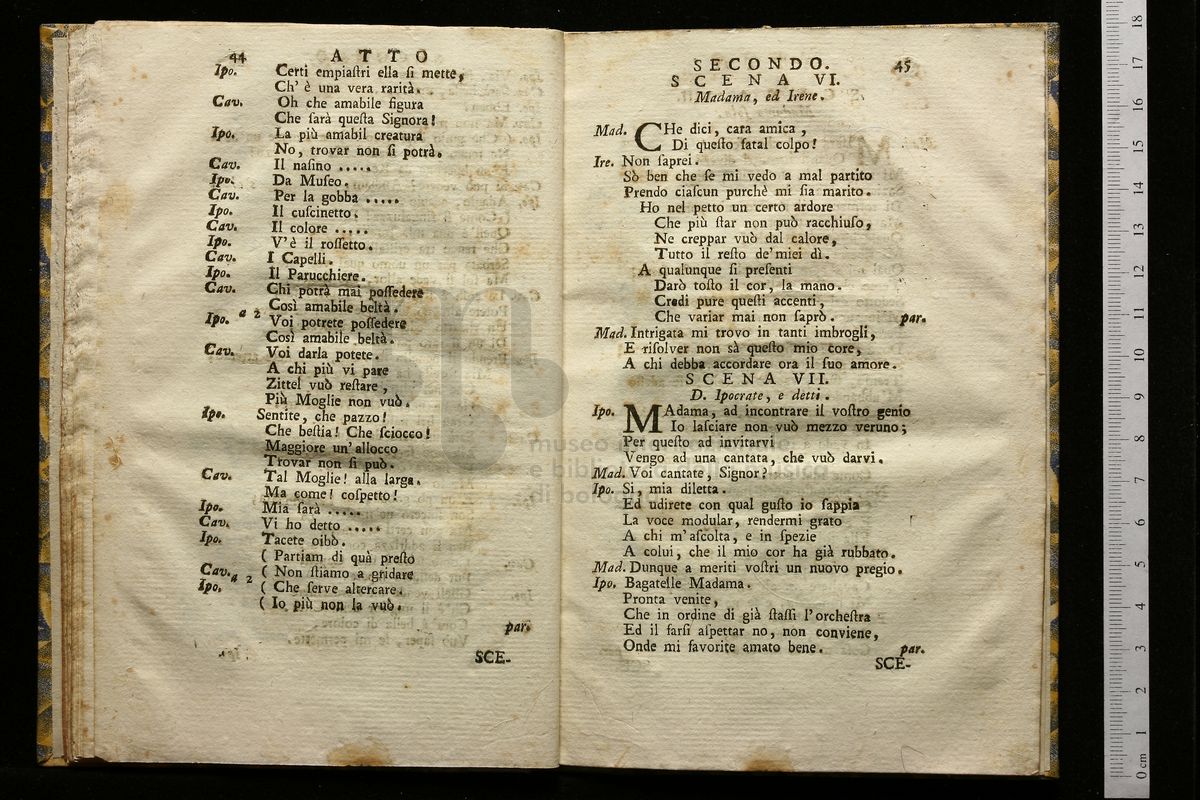 44 ATTO
Ipo. Certi empiaſtri ella ſi mette,
Ch' è una vera rarità.
Cav. Oh che amabile figura
Che ſarà queſta Signora!
Ipo. La più amabil creatura
No, trovar non ſi potrà.
Cav. Il naſino .....
Ipo. Da Muſeo.
Cav. Per la gobba .....
Ipo. Il cuſcinetto.
Cav. Il colore .....
Ipo. V'è il roſſetto.
Cav. I Capelli.
Ipo. Il Parucchiere.
Cav. Chi potrà mai poſſedere
Così amabile beltà.
Ipo. a 2 Voi potrete poſſedere
Così amabile beltà.
Cav. Voi darla potete.
A chi più vi pare
Zittel vuò reſtare,
Più Moglie non vuò.
Ipo. Sentite, che pazzo!
Che beſtia! Che ſciocco!
Maggiore un' allocco
Trovar non ſi può.
Cav. Tal Moglie! alla larga.
Ma come! coſpetto!
Ipo. Mia ſarà .....
Cav. Vi ho detto .....
Ipo. Tacete oibò.
( Partiam di quà preſto
Cav. a 2 ( Non ſtiamo a gridare
Ipo. ( Che ſerve altercare.
( Io più non la vuò.
par.
SCE-
SECONDO. 45
SCENA VI.
Madama, ed Irene.
Mad. CHe dici, cara amica,
Di queſto fatal colpo!
Ire. Non ſaprei.
Sò ben che ſe mi vedo a mal partito
Prendo ciaſcun purchè mi ſia marito.
Ho nel petto un certo ardore
Che più ſtar non può racchiuſo,
Ne creppar vuò dal calore,
Tutto il reſto de' miei dì.
A qualunque ſi preſenti
Darò toſto il cor, la mano.
Credi pure queſti accenti,
Che variar mai non ſaprò. par.
Mad. Intrigata mi trovo in tanti imbrogli,
E riſolver non sà queſto mio core,
A chi debba accordare ora il ſuo amore.
SCENA VII.
D. Ipocrate, e detti.
Ipo. MAdama, ad incontrare il voſtro genio
Io laſciare non vuò mezzo veruno;
Per queſto ad invitarvi
Vengo ad una cantata, che vuò darvi.
Mad. Voi cantate, Signor?
Ipo. Si, mia diletta.
Ed udirete con qual guſto io ſappia
La voce modular, rendermi grato
A chi m'aſcolta, e in ſpezie
A colui, che il mio cor ha già rubbato.
Mad. Dunque a meriti voſtri un nuovo pregio.
Ipo. Bagatelle Madama.
Pronta venite,
Che in ordine di già ſtaſſi l'orcheſtra
Ed il farſi aſpettar no, non conviene,
Onde mi favorite amato bene. par.
SCE-
museo
e biblioteca della musica
di bologna
0 cm 1 2 3 4 5 6 7 8 9 10 11 12 13 14 15 16 17 18